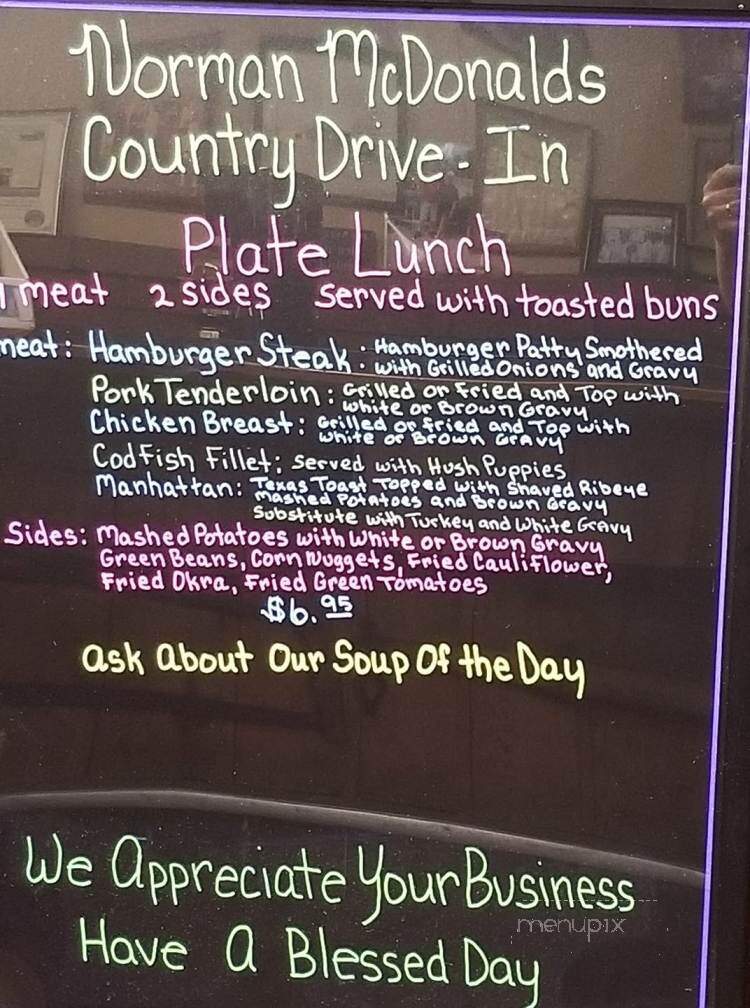 Norman McDonalds
Country Drive-In
Plate Lunch
1 meat 2 sides served with toasted buns
meat: Hamburger Steak: Hamburger Patty Smothered
with Grilled Onions and Gravy
Pork Tenderloin: Grilled or Fried and Top with
White or Brown Gravy
Chicken Breast: Grilled or fried and Top with
White or Brown Gravy
Cod Fish Fillet: Served with Hush Puppies
Manhattan: Texas Toast Topped with Shaved Ribeye
Mashed Potatoes and Brown Gravy
Substitute with Turkey and White Gravy
Sides: Mashed Potatoes with White or Brown Gravy
Green Beans, Corn Nuggets, Fried Cauliflower,
Fried Okra, Fried Green Tomatoes
$6.95
ask About Our Soup Of the Day
We Appreciate Your Business
Have A Blessed Day
menupix